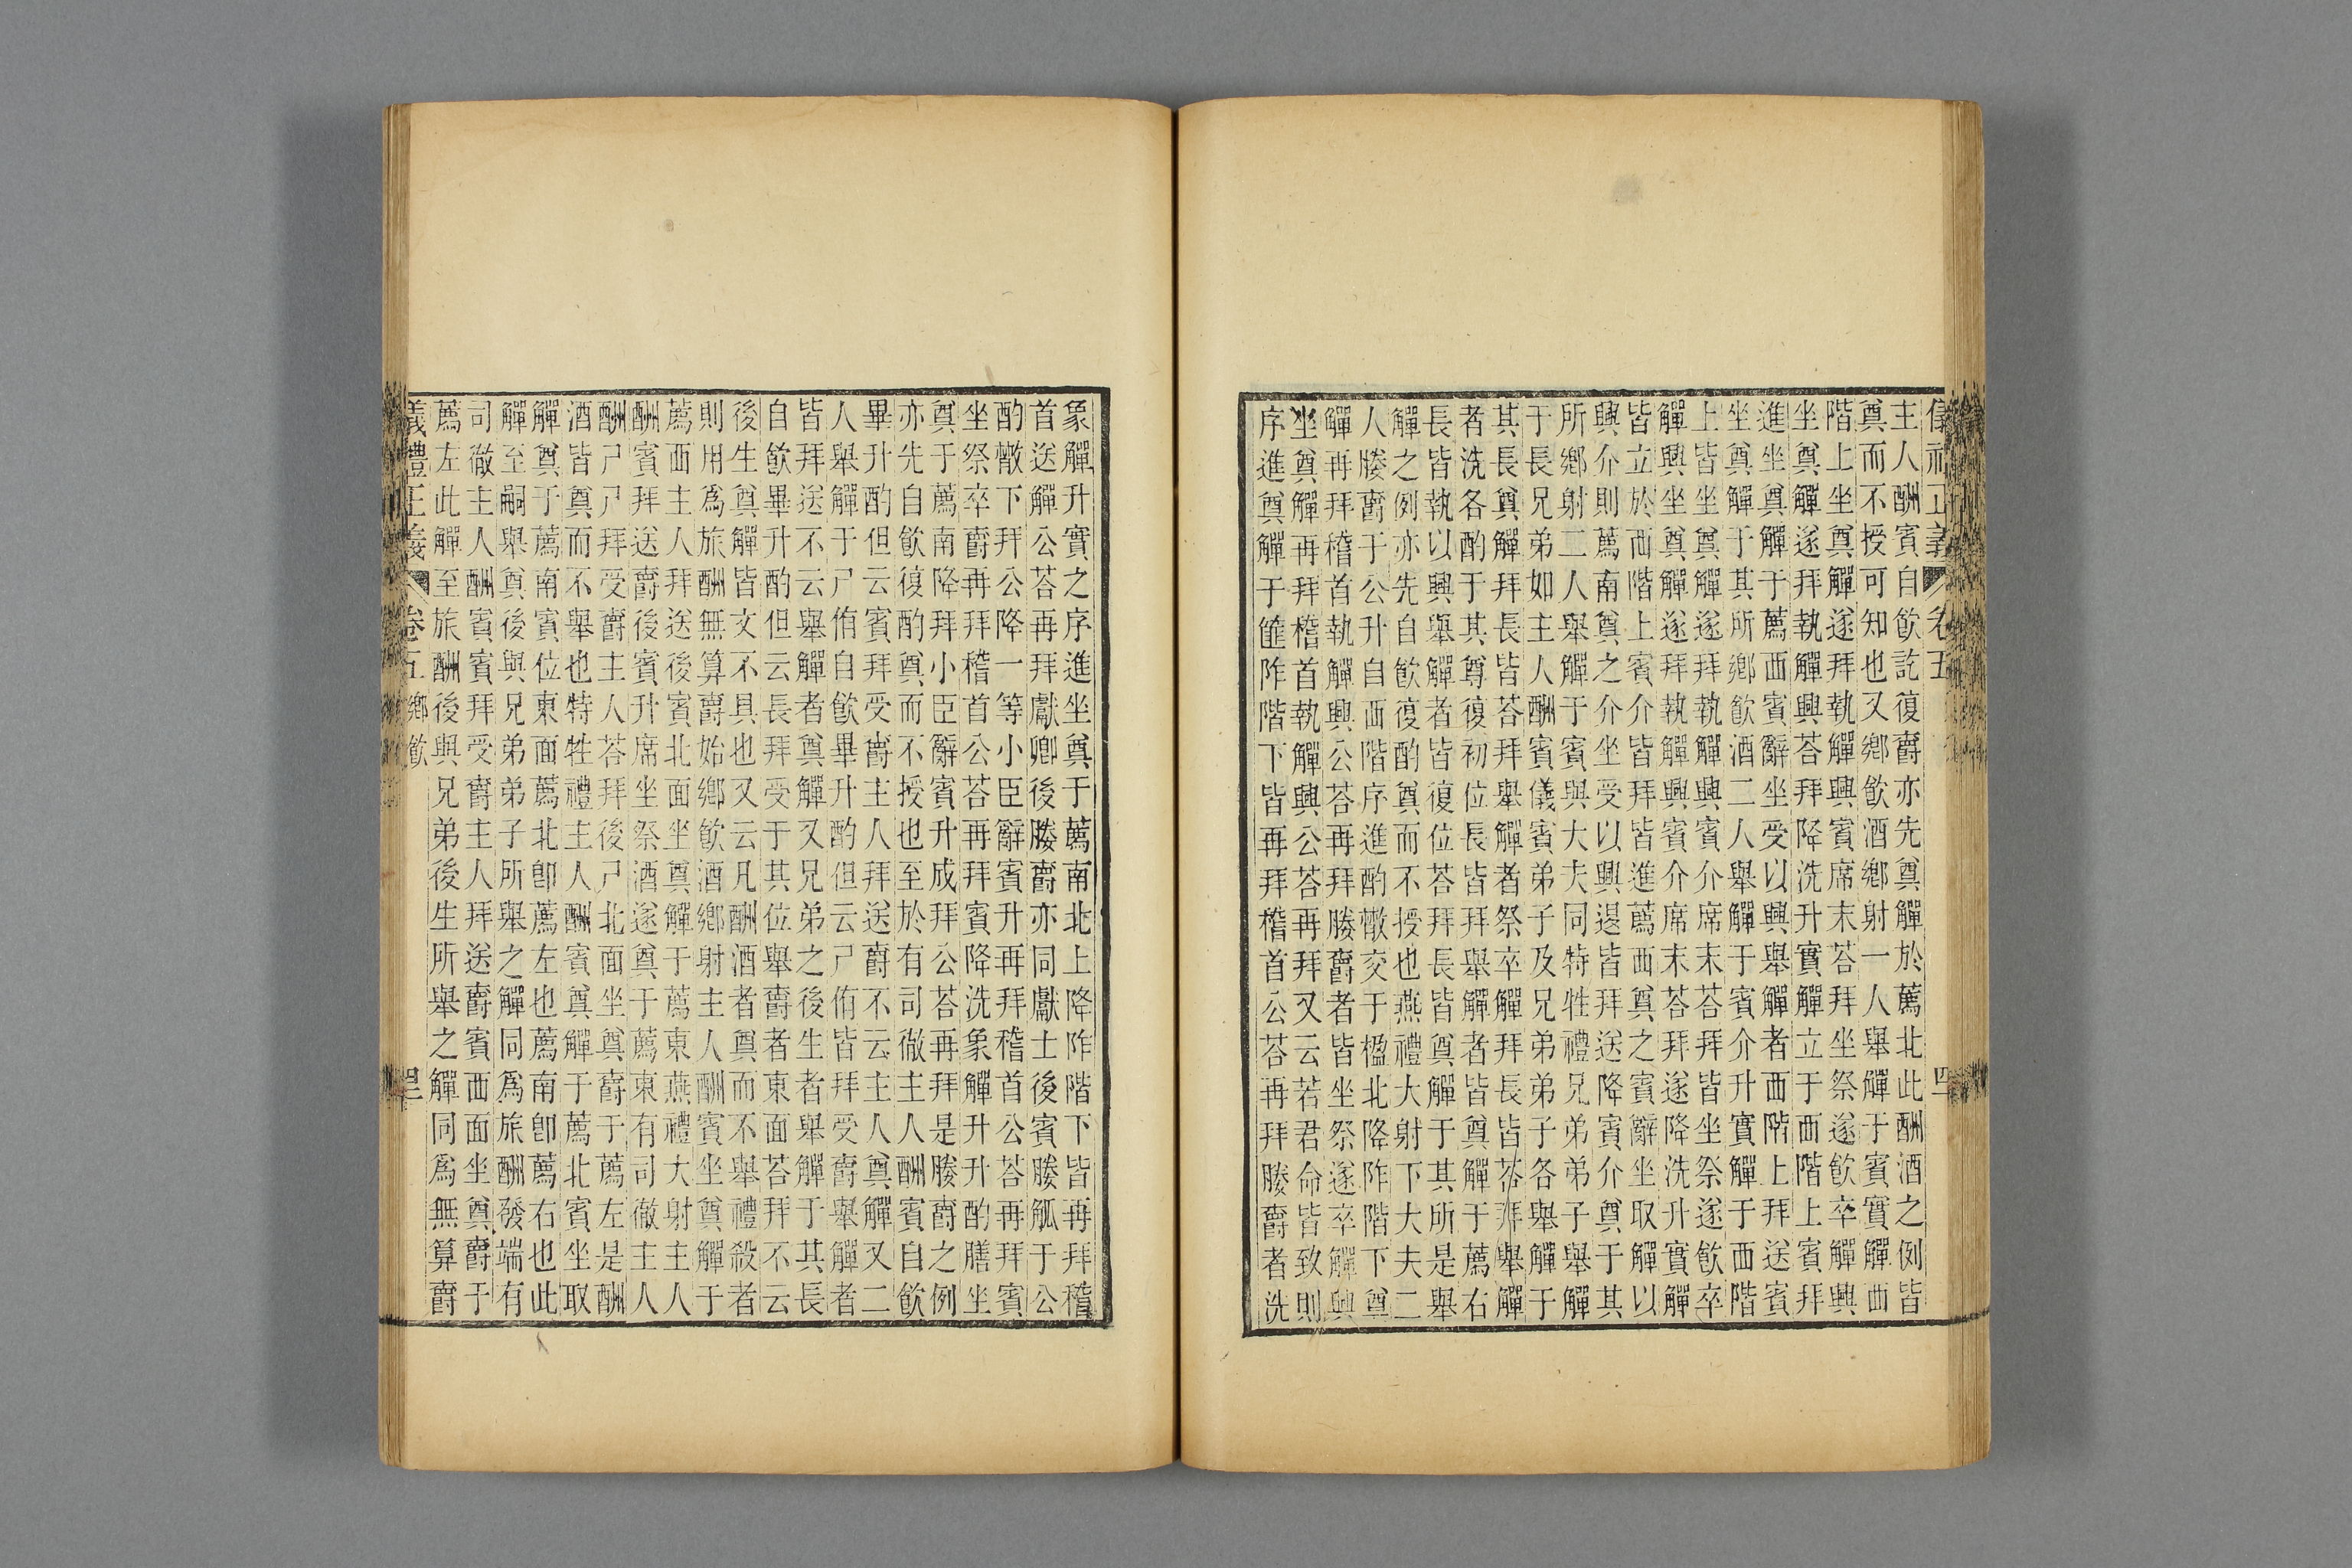 主人酬賓自飲訖復爵亦先奠觶於薦北此酬酒之例皆
奠而不授可知也又鄉飲酒鄉射一人舉觶于賓實觶西
階上坐奠觶遂拜執觶興賓席末荅拜坐祭遂飲卒觶興
坐奠觶遂拜執觶興荅拜降洗升實觶立于西階上賓拜
進坐奠觶于薦西賓辭坐受以興舉觶者西階上拜送賓
坐奠觶于其所鄉飲酒二人舉觶于賓介升實觶于西階
上皆坐奠觶遂拜執觶興賓介席末荅拜皆坐祭遂飲卒
觶興坐奠觶遂拜執觶興賓介席末荅拜遂降洗升實觶
皆立於西階上賓介皆拜皆進薦西奠之賓辭坐取觶以
興介則薦南奠之介坐受以興退皆拜送降賓介奠于其
所鄉射二人舉觶于賓與大夫同特牲禮兄弟弟子舉觶
于長兄弟如主人酬賓儀賓弟子及兄弟弟子各舉觶于
其長奠觶拜長皆荅拜舉觶者祭卒觶拜長皆荅拜舉觶
者洗各酌于其尊復初位長皆拜舉觶者皆奠觶于薦右
長皆執以興舉觶者皆復位荅拜長皆奠觶于其所是舉
觶之例亦先自飲復酌奠而不授也燕禮大射下大夫二
人媵爵于公升自西階序進酌散交于楹北降阼階下奠
觶再拜稽首執觶興公荅再拜媵爵者皆坐祭遂卒觶興
坐奠觶再拜稽首執觶興公荅再拜又云若君命皆致則
序進奠觶于篚阼階下皆再拜稽首公荅再拜媵爵者洗
象觶升實之序進坐奠于薦南北上降阼階下皆再拜稽
首送觶公荅再拜獻卿後媵爵亦同獻士後賓媵觚于公
酌散下拜公降一等小臣辭賓升再拜稽首公荅再拜賓
坐祭卒爵再拜稽首公荅再拜賓降洗象觶升升酌膳坐
奠于薦南降拜小臣辭賓升成拜公荅再拜是媵爵之例
亦先自飲復酌奠而不授也至於有司徹主人酬賓自飲
畢升酌但云賓拜受爵主人拜送爵不云主人奠觶又二
人舉觶于尸侑自飲畢升酌但云尸侑皆拜受爵舉觶者
皆拜送不云舉觶者奠觶又兄弟之後生者舉觶于其長
自飲畢升酌但云長拜受于其位舉爵者東面荅拜不云
後生奠觶皆文不具也又云凡酬酒者奠而不舉禮殺者
則用爲旅酬無算爵始鄉飲酒鄉射主人酬賓坐奠觶于
薦西主人拜送後賓北面坐奠觶于薦東燕禮大射主人
酬賓拜送爵後賓升席坐祭酒遂奠于薦東有司徹主人
酬尸尸拜受爵主人荅拜後尸北面坐奠爵于薦左是酬
酒皆奠而不舉也特牲禮主人酬賓奠觶于薦北賓坐取
觶奠于薦南賓位東面薦北卽薦左也薦南卽薦右也此
觶至嗣舉奠後與兄弟弟子所舉之觶同爲旅酬發端有
司徹主人酬賓賓拜受爵主人拜送爵賓西面坐奠爵于
薦左此觶至旅酬後與兄弟後生所舉之觶同爲無算爵